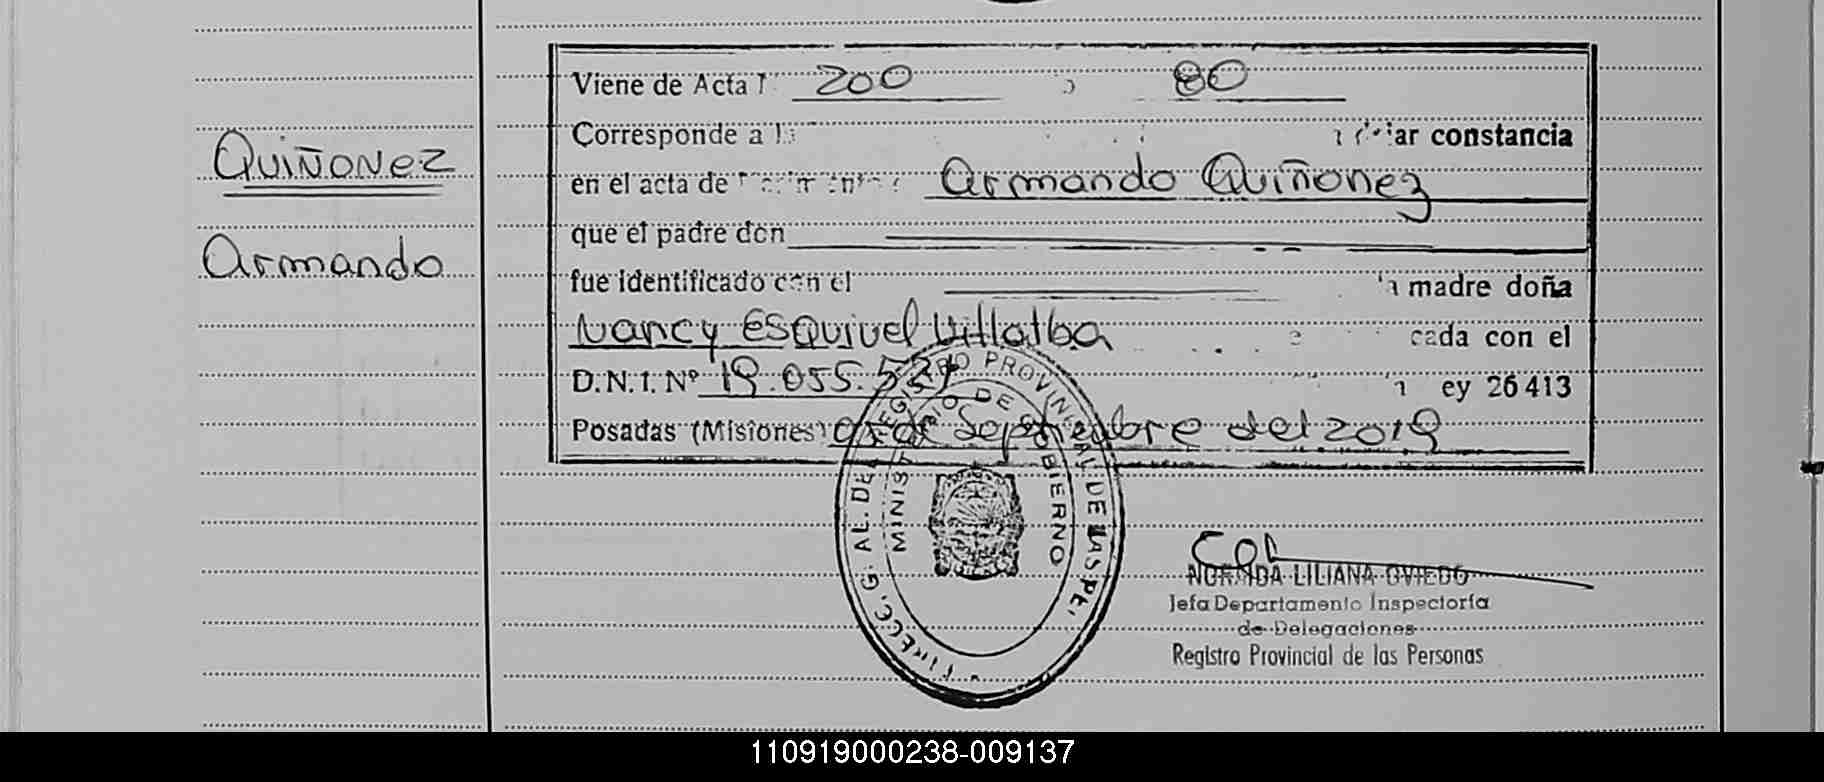 Viene de Acta 200 80
Corresponde a ar constancia
Quiñonez
en el acta de Armando Quiñonez
que el padre don
Armando
fue identificado con el madre doña
Nancy Esquivel Villalba
cada con el
D.N.I. Nº ey 26413
Posadas (Misiones) de Septiembre del 2019
REGISTRO PROVINCIAL DE LAS PE.
MINISTERIO DE GOBIERNO
NORMDA LILIANA OVIEDO
Jefa Departamento Inspectoría
de Delegaciones
Registro Provincial de las Personas
110919000238-009137